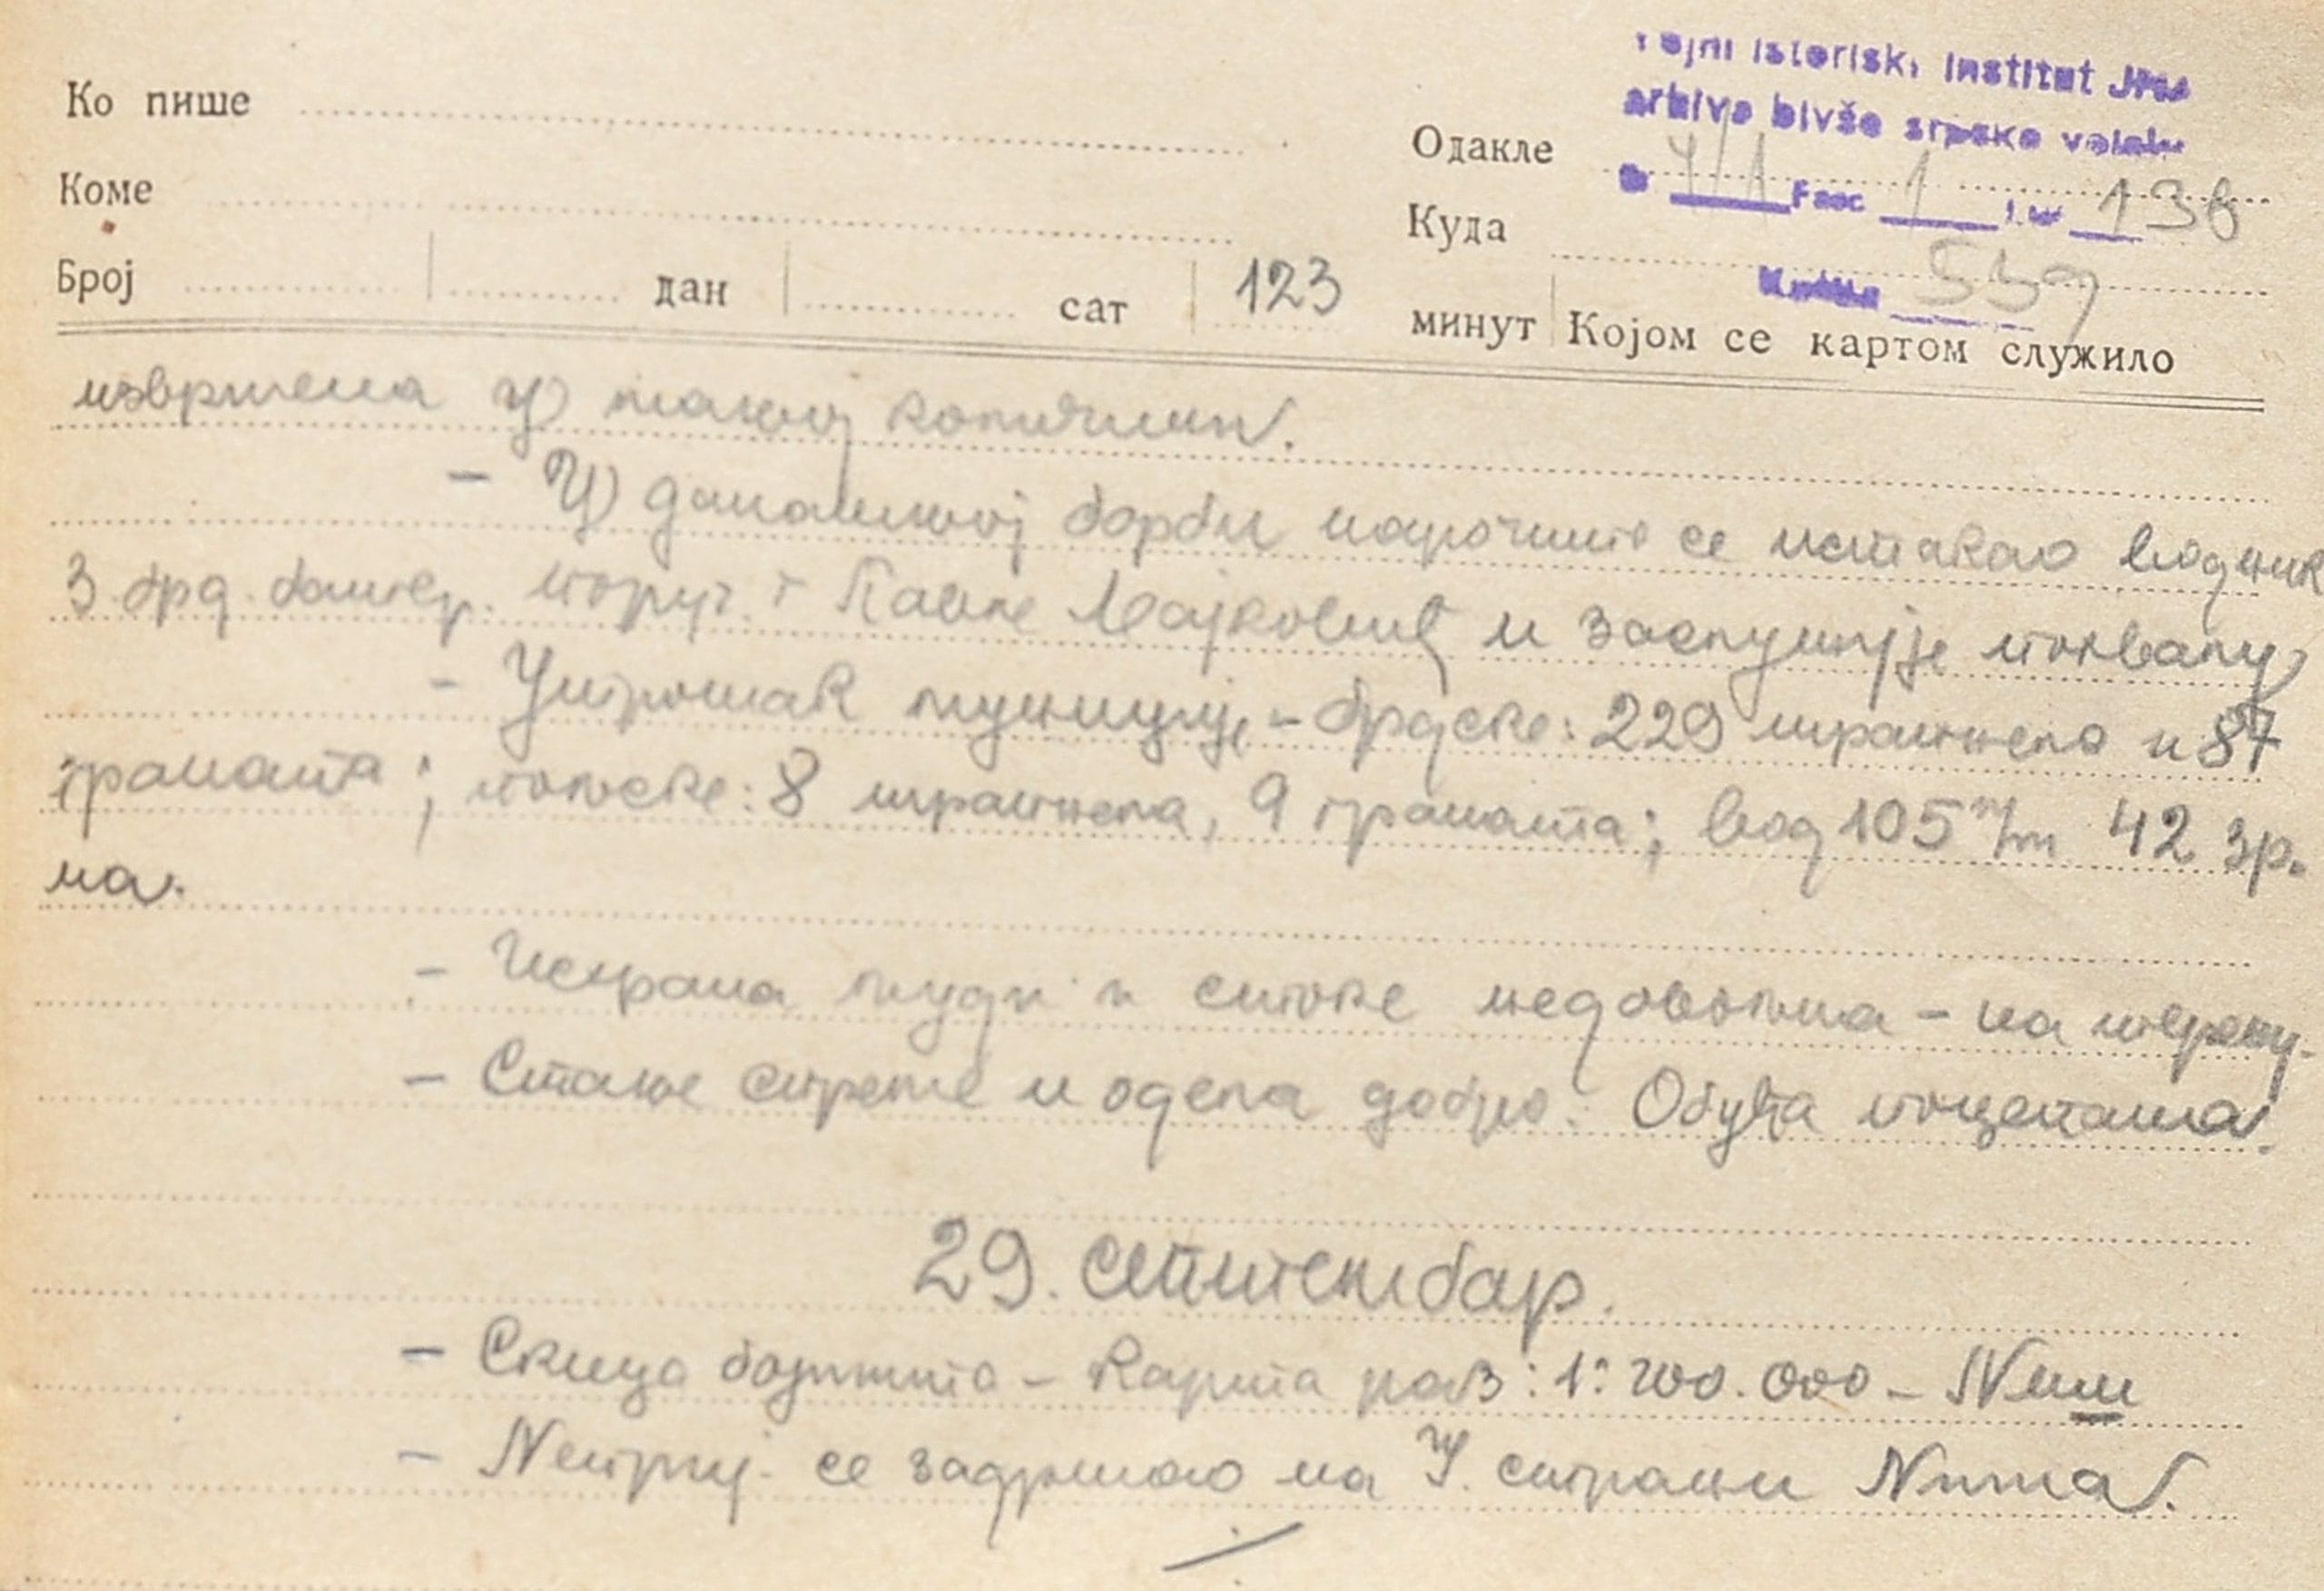 Vojni istorisk. institut JNA
arhiva bivše srpske vojske
Ко пише
Одакле
K 4/1 Fasc 1 I. br 138
Коме
Куда
559
Број дан сат 123 минут Којом се картом служило
извршена у таквој количини.
- У данашњој борби нарочито се истакао водник
3. брд. батер. поруч. г Павле Вајковић и заслужује похвалу
- Утрошак муниције - брдске: 229 шрапнела и 87
граната; пољске: 8 шрапнела, 9 граната; вод 105 m/m 42 зр.
на.
- Исхрана људи и стоке недовољна - на терену.
- Стање спреме и одела добро. Обућа поцепана.
29. септембар.
- Скица бојишта - карта раз: 1:200.000 - Ниш
- Непријт. се задржао на Ј. страни Ниша.